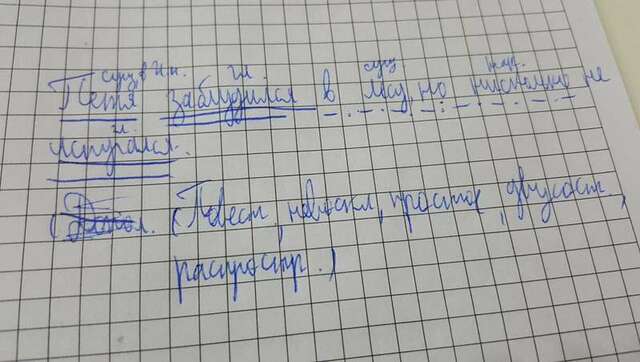 сущ в И.п. гл. сущ нар.
Петя заблудился в лесу, но нисколько не
гл.
испугался.
(Повест, невоскл, простое, двусост.,
распростр.)